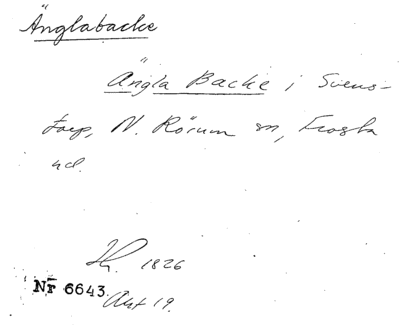 Änglabacke
Ängla Backe i Svens-
torp, N. Rörum sn, Frosta
hd.
Lh. 1826
Nr 6643. Akt 19.